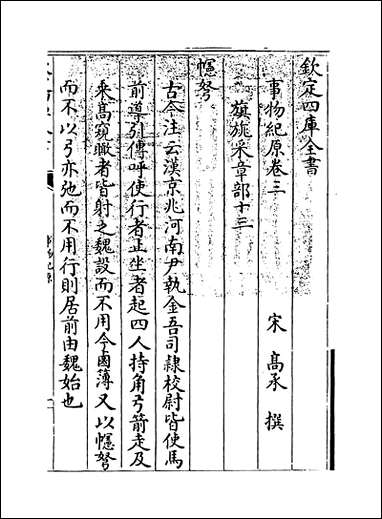 欽定四庫全書
事物紀原卷三
宋 高承 撰
旗旐采章部十三
幰弩
古今注云漢京兆河南尹執金吾司隸校尉皆使馬
前導引傳呼使行者止坐者起四人持角弓箭走及
乘高窺瞰者皆射之魏設而不用今鹵薄又以幰弩
而不以弓亦弛而不用行則居前由魏始也